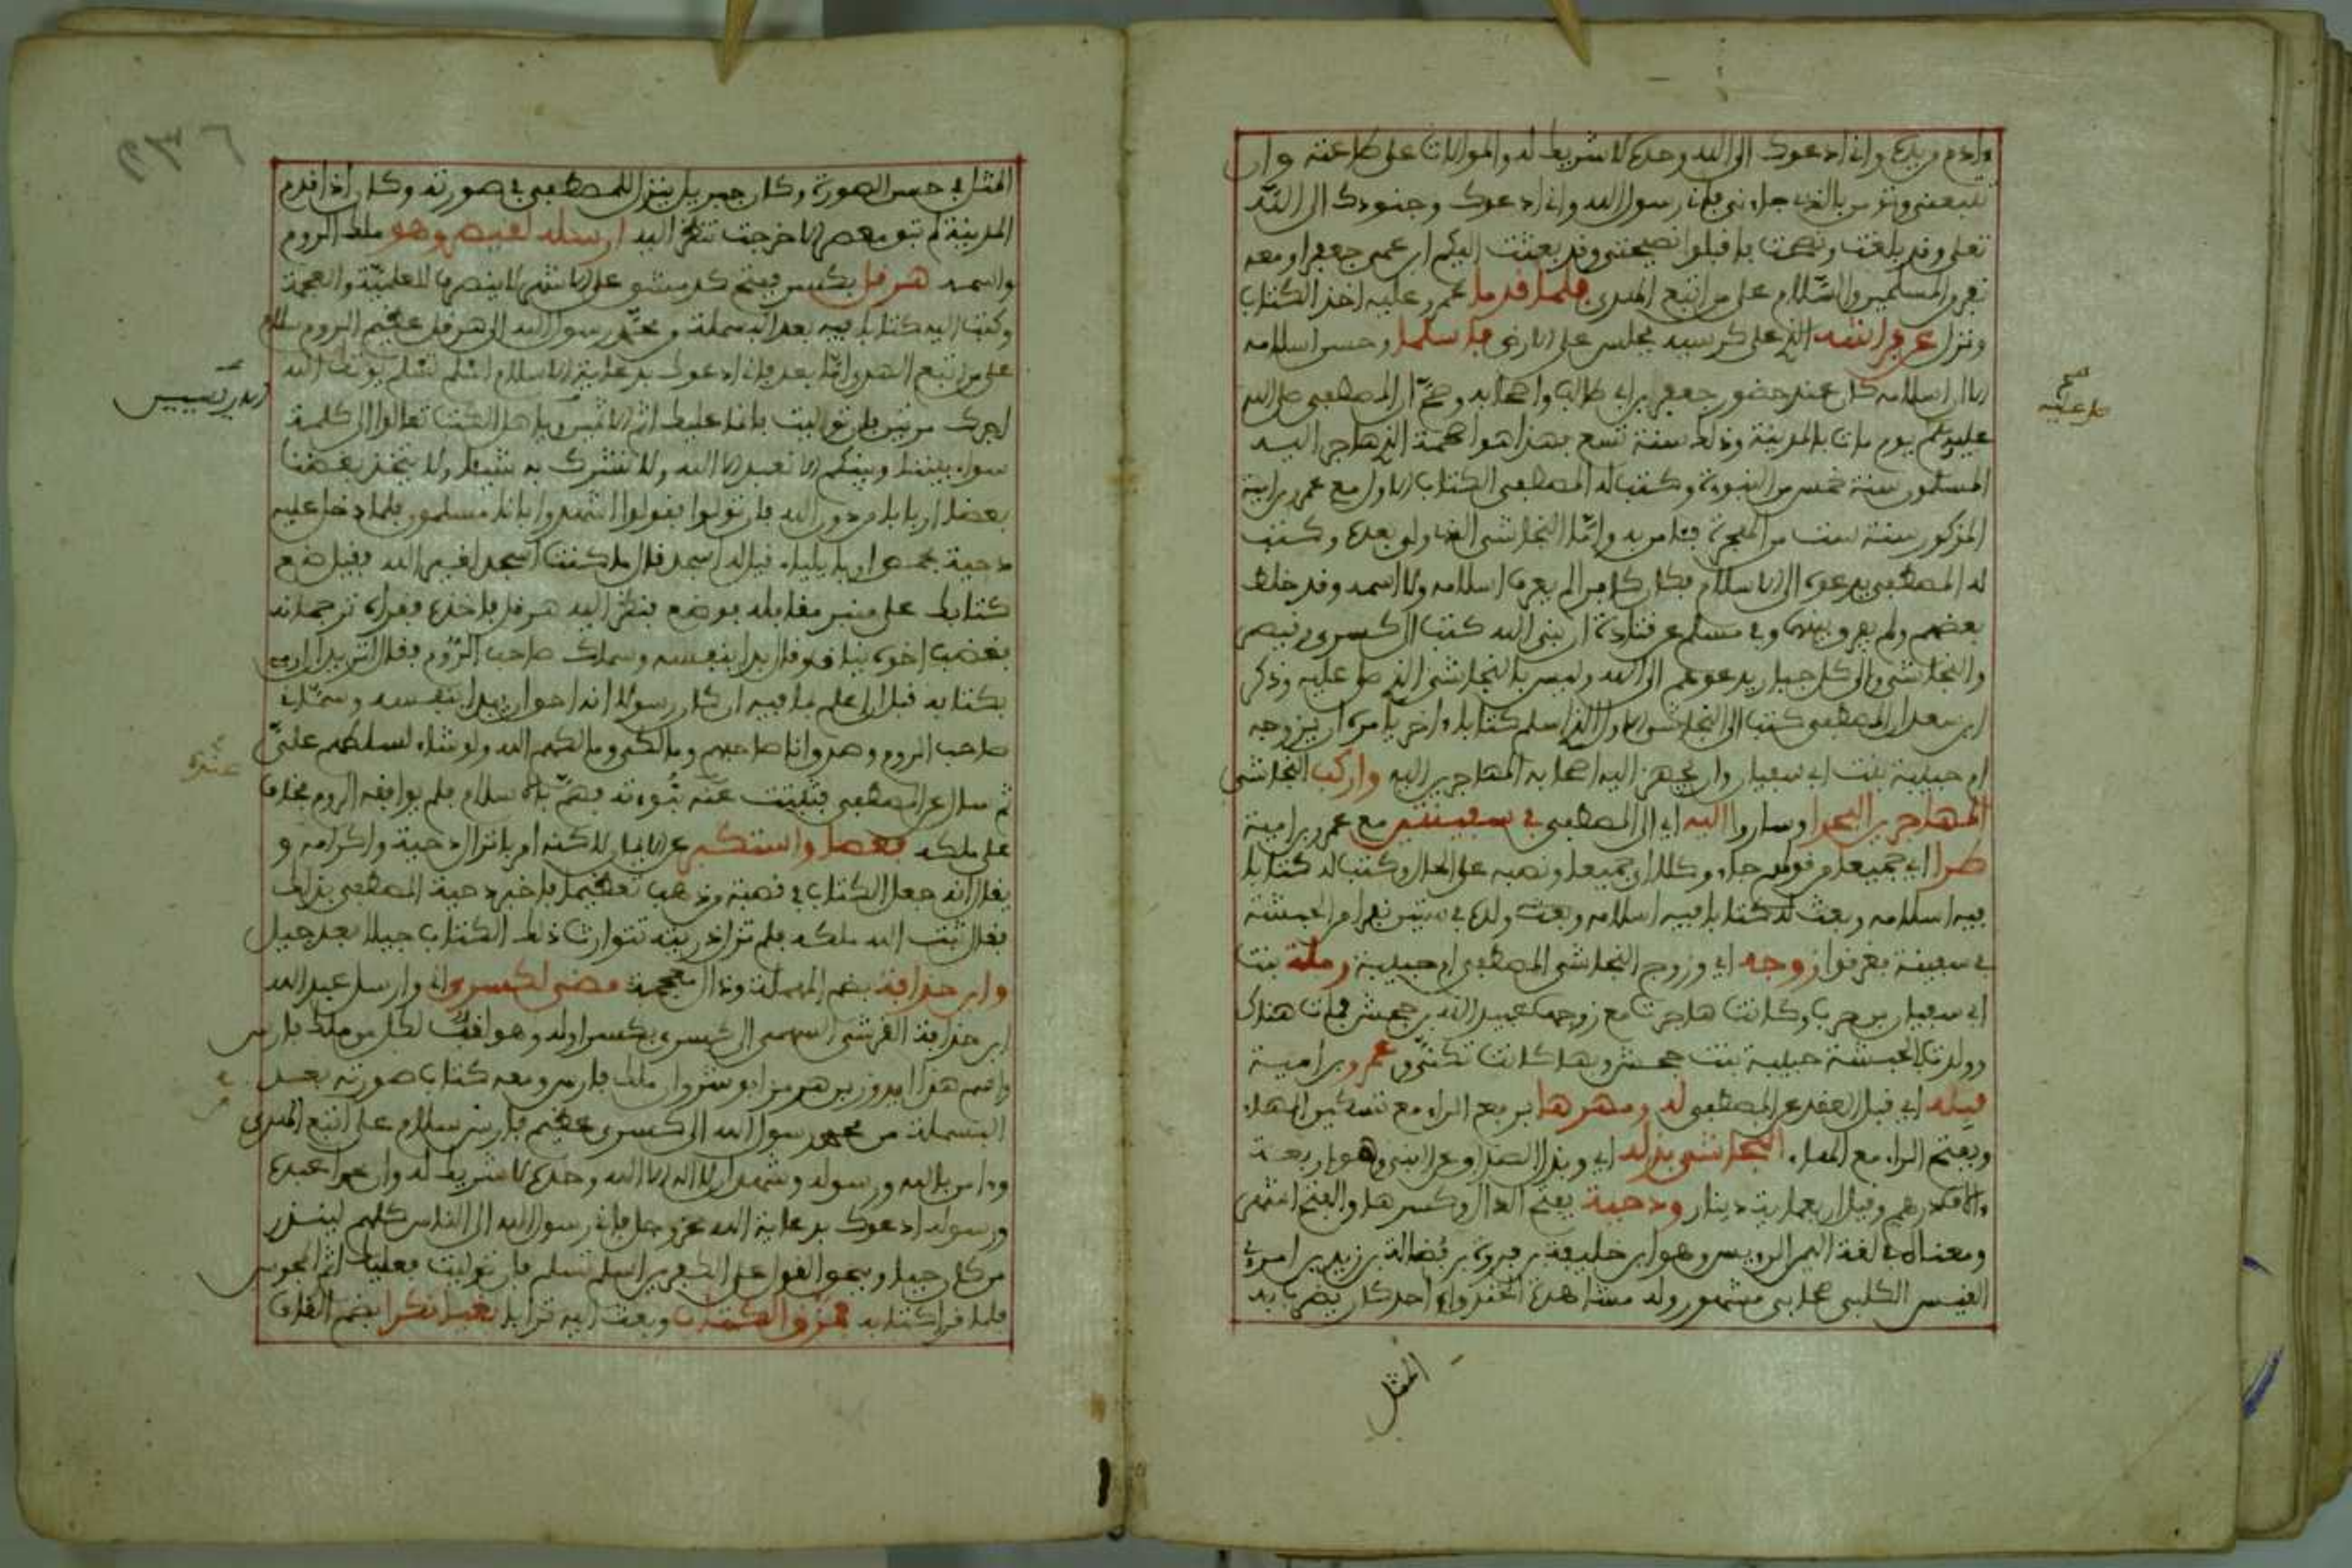 وادم بيده وانى ادعوك الى الله وحده لا شريك له والموالات على طاعته وان
تتبعنى وتؤمن بالذى جاءنى فانى رسول الله وانى ادعوك وجنودك الى الله
تعلى وقد بلغت ونصحت فاقبلوا نصيحتى وقد بعثت اليكم ابن عمى جعفرا ومعه
نفر من المسلمين والسلام على من اتبع الهدى فلما قدما عمرو عليه اخذ الكتاب
ونزل عن فراشه الذى على كرسيه فجلس على الارض فاسلما وحسن اسلامه
الا ان اسلامه كان عند حضور جعفر بن ابى طالب واصحابه وصح ان المصطفى صلى الله
عليه وسلم يوم مات بالمدينة وذلك سنة تسع بهذا هو اصحمة الذى هاجر اليه
المسلمون سنة خمس من النبوة وكتب له المصطفى الكتاب الاول مع عمرو بن امية
المذكور سنة ست من الهجرة فئامن به واما النجاشى الذى ولى بعده وكتب
له المصطفى يدعوه الى الاسلام فكان كافرا لم يعرف اسلامه ولا اسمه وقد خلط
بعضهم ولم يفرق بينهما وفى مسلم عن قتادة ان نبى الله كتب الى كسرى وقيصر
والنجاشى والى كل جبار يدعوهم الى الله وليس بالنجاشى الذى صلى عليه وذكر
ابن سعد ان المصطفى كتب الى النجاشى الاول الذى اسلم كتابا واخر يامره ان يزوجه
ام حبيبة بنت ابى سفيان وان يجهز اليه اصحابه المهاجرين اليه واركب النجاشى
المهاجرين البحرا وساروا اليه اى الى المصطفى فى سفينتين مع عمرو بن امية
طرا اى جميعا من قولهم جاءوك طرا اى جميعا ونصبه على الحال وكتب له كتابا
فيه اسلامه وبعث له كتابا فيه اسلامه وبعث ولده فى ستين نفرا من الحبشة
فى سفينة فغرقوا زوجه اى وزوج النجاشى المصطفى ام حبيبة رملة بنت
ابى سفيان بن حرب وكانت هاجرت مع زوجها عبيد الله بن جحش فمات هناك
وولدت بالحبشة حبيبة بنت جحش وبها كانت تكنى وعمرو بن امية
قبله اى قبل العقد عن المصطفى له ومهرها برفع الراء مع تسكين الهاء
وبفتح الراء مع الهاء النجاشى بذله اى وبذل الصداق عن النبى وهو اربعة
ءالاف درهم وقيل اربعماية دينار ودحية بفتح الدال وكسرها والفتح اشهر
ومعناه فى لغة اليمن الرييس وهو ابن خليفة بن فروة بن فضالة بن زيد بن امرئ
القيس الكلبى صحابى مشهور اول مشاهده الخندق او احد كان يضرب به
المثل
صح
صلى عليه
المثل فى حسن الصورة وكان جبريل ينزل للمصطفى فى صورته وكان اذا قدم
المدينة لم تبق معصر الا خرجت تنظر اليه ارسله لقيصر وهو ملك الروم
واسمه هرقل بكسر ففتح كدمشق على الاشهر لا ينصرف للعلمية والعجمة
وكتب اليه كتابا فيه بعد البسملة من محمد رسول الله الى هرقل عظيم الروم سلام
على من اتبع الهدى اما بعد فانى ادعوك بدعاية الاسلام اسلم تسلم يوتك الله
اجرك مرتين فان توليت فانما عليك اثم الاريسيين وياهل الكتب تعالوا الى كلمة
سواء بيننا وبينكم الا نعبد الا الله ولا نشرك به شيئا ولا يتخذ بعضنا
بعضا اربابا من دون الله فان تولوا فقولوا اشهدوا بانا مسلمون فلما دخل عليه
دحية بحمص او بايلياء قيل له اسجد قال ما كنت اسجد لغير الله فقيل ضع
كتابك على منبر مقابله فوضع فنظر اليه هرقل فاخذه فقراه ترجمانه
فغضب اخوه يناق وقال بدا بنفسه وسماك صاحب الروم فقال اتريد ان ارمى
بكتابه قبل ان اعلم ما فيه ان كان رسولا انه احق ان يبدا بنفسه وسمانى
صاحب الروم وصدق انا صاحبهم ومالكى ومالكهم الله ولو شاء لسلطهم على
ثم سال عن المصطفى فتثبت عنده نبوءته فهم بالاسلام فلم يوافقه الروم فخاف
على ملكه فعصا واستكبر عن الايمان لاكنه امر بانزال دحية واكرامه و
يقال انه جعل الكتاب فى قصبة من ذهب تعظيما فاخبر دحية المصطفى بذلك
فقال ثبت الله ملكه فلم تزل ذريته تتوارث ذلك الكتاب جيلا بعد جيل
وابن حذافة بضم المهملة وذال معجمة مضى لكسرى اى وارسل عبد الله
ابن حذافة القرشى السهمى الى كسرى بكسر اوله وهو لقب لكل من ملك فارس
واسم هذا ابرويز بن هرمز انوشروان ملك فارس ومعه كتاب صورته بعد
البسملة من محمد رسول الله الى كسرى عظيم فارس سلام على من اتبع الهدى
وءامن بالله ورسوله وشهد ان لا اله الا الله وحده لا شريك له وان محمدا عبده
ورسوله ادعوك بدعاية الله عز وجل فانى رسول الله الى الناس كلهم لينذر
من كان حيا ويحق القول على الكفرين اسلم تسلم فان توليت فعليك اثم المجوس
فلما قرا كتابه مزق الكتاب وبعث اليه ترابا بغيا نكرا بضم القاف
عنده